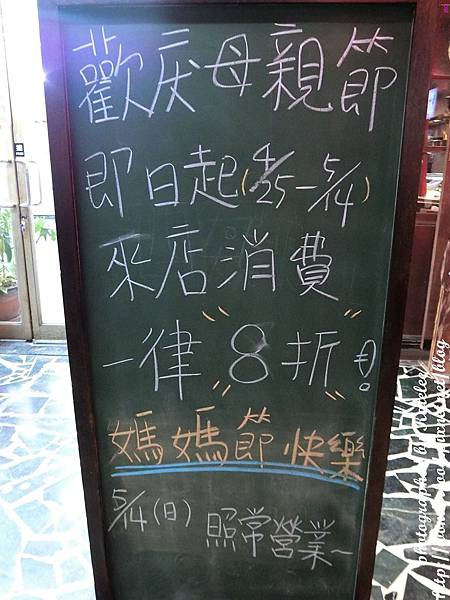 歡庆母親節
即日起(4/25-5/14)
來店消費
一律"8折"!
媽媽節快樂
5/14(日)
照常營業~